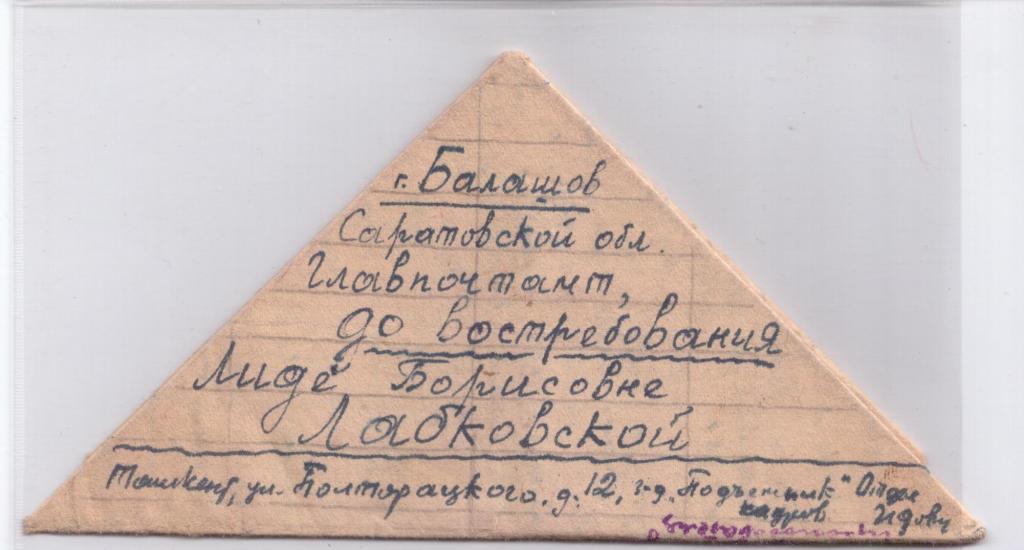 г. Балашов
Саратовской обл.
Главпочтамт,
до востребования
Лиде Борисовне
Лабковской
Ташкент, ул. Полторацкого, д. 12, з-д „Подъемник" Отдел
кадров